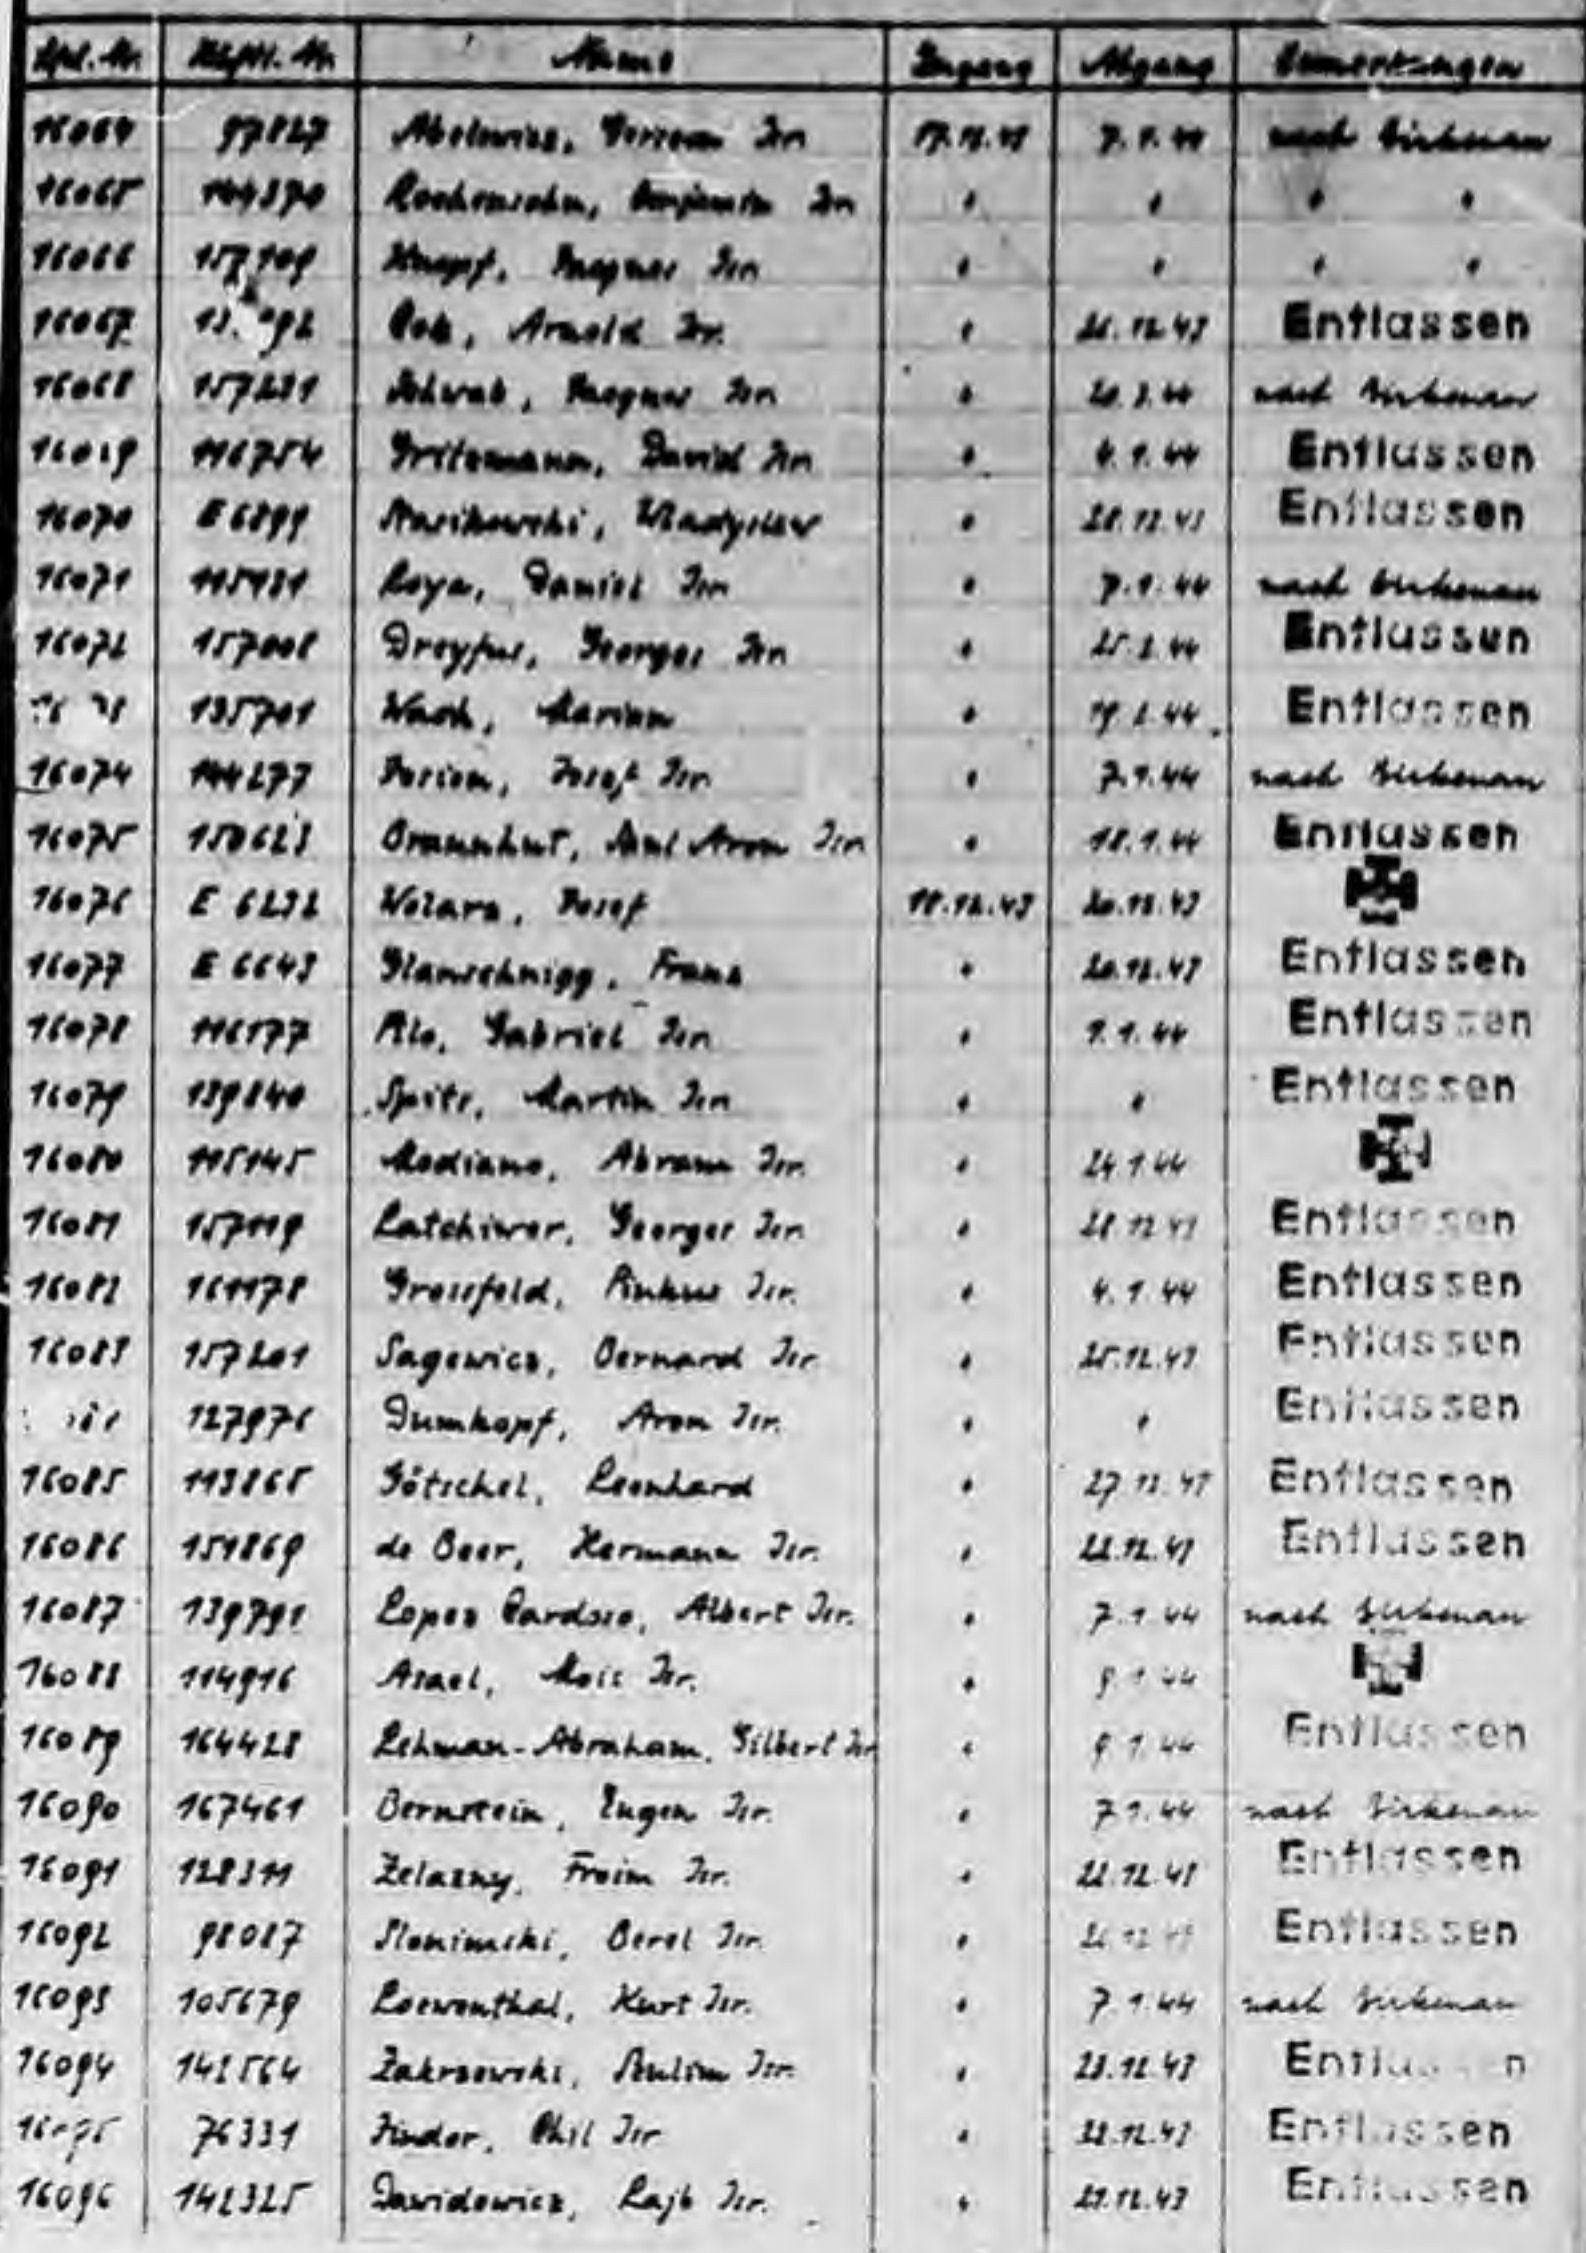 Spl. Nr. Häftl. Nr. Name Zugang Abgang Bemerkungen
16064 97827 Abelowicz, Isr. 17.12.43 7.1.44 nach Birkenau
16065 144370 Isr. " " " "
16066 Knopf, Magnus Isr. " " " "
16067 Arnold Isr. " 21.12.43 Entlassen
16068 157231 Schwab, Magnus Isr. " 20.3.44 nach Birkenau
116754 David Isr. " 4.1.44 Entlassen
16070 E 6899 Wladyslaw " 28.12.43 Entlassen
16071 Daniel Isr. " 7.1.44 nach Birkenau
16072 157008 Dreyfus, Georges Isr. " 25.2.44 Entlassen
135701 Marian " 19.2.44 Entlassen
16074 144277 Josef Isr. " 7.1.44 nach Birkenau
16075 150623 Braunhut, Aron Isr. " 18.1.44 Entlassen
16076 E 6232 Wozara, Josef 18.12.43 20.12.43
16077 E 6643 Glanschnigg, Franz " 20.12.43 Entlassen
16078 116177 Gabriel Isr. " 9.1.44 Entlassen
16079 139840 Spitz, Martin Isr. " " Entlassen
16080 115145 Modiano, Abram Isr. " 24.1.44
16081 157119 Latchiwer, Georges Isr. " 28.12.43 Entlassen
16082 161178 Grossfeld, Pinkus Isr. " 4.1.44 Entlassen
16083 157201 Sagewicz, Bernard Isr. " 25.12.43 Entlassen
127976 Dumkopf, Aron Isr. " " Entlassen
16085 113865 Götschel, Leonhard " 27.12.43 Entlassen
16086 151869 de Beer, Hermann Isr. " 22.12.43 Entlassen
16087 139791 Lopes Cardozo, Albert Isr. " 7.1.44 nach Birkenau
16088 114916 Asael, Mois Isr. " 9.1.44
16089 164428 Lehman-Abraham, Gilbert Isr " 9.1.44 Entlassen
16090 167461 Bernstein, Eugen Isr. " 7.1.44 nach Birkenau
16091 128311 Zelazny, Froim Isr. " 22.12.43 Entlassen
16092 98087 Slonimski, Berel Isr. " Entlassen
16093 105679 Loewenthal, Kurt Isr. " 7.1.44 nach Birkenau
16094 142564 Zakrzewski, Isr. " 23.12.43 Entlassen
76331 Finder, Chil Isr " 22.12.43 Entlassen
16096 142325 Dawidowicz, Lajb Isr. " 23.12.43 Entlassen